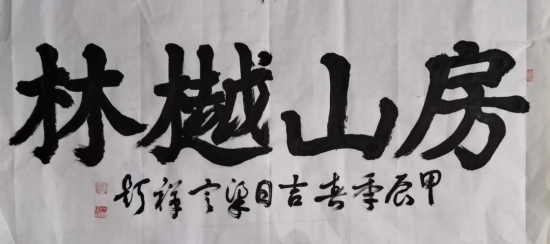 房山樾林
甲辰季春吉日梁言祥题